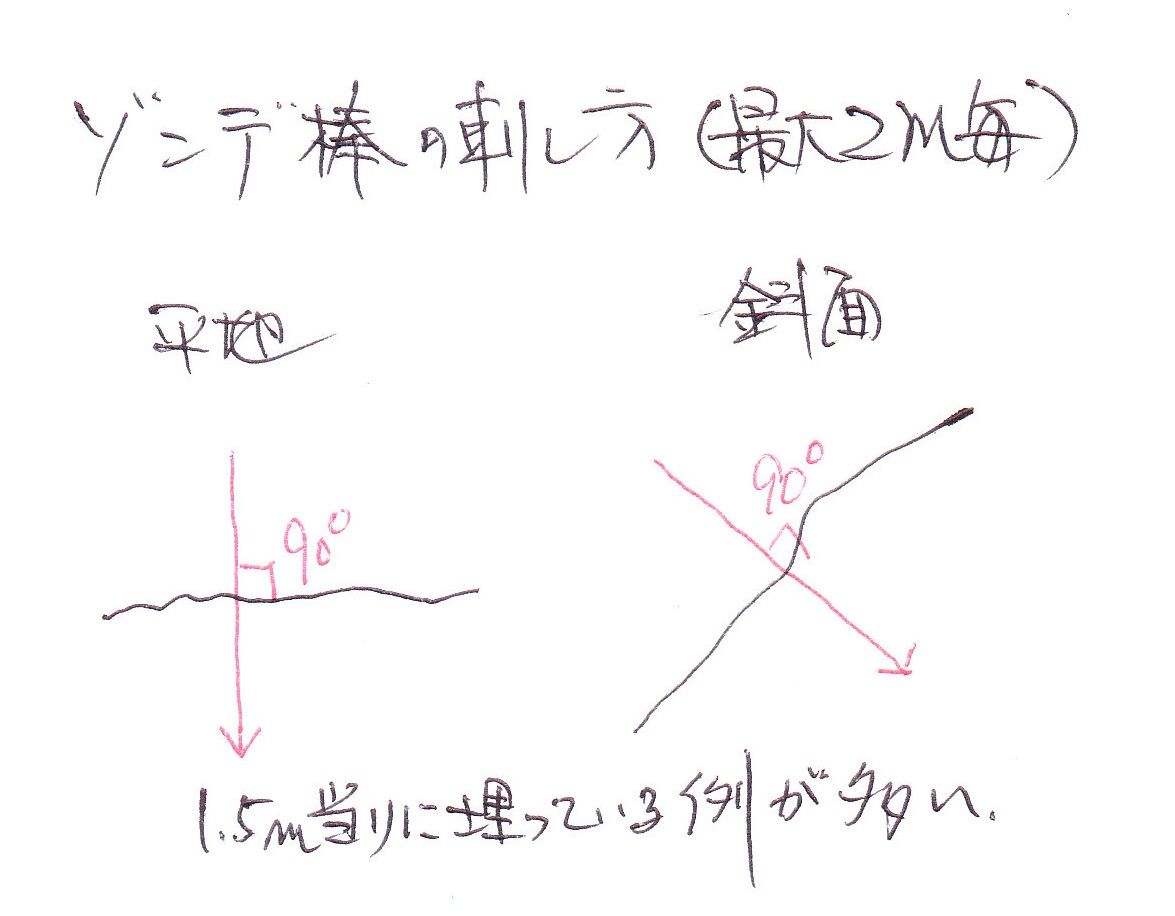 ゾンデ棒の刺し方(最大2m毎)
平地
斜面
90°
90°
1.5m当りに埋っている例が多い.